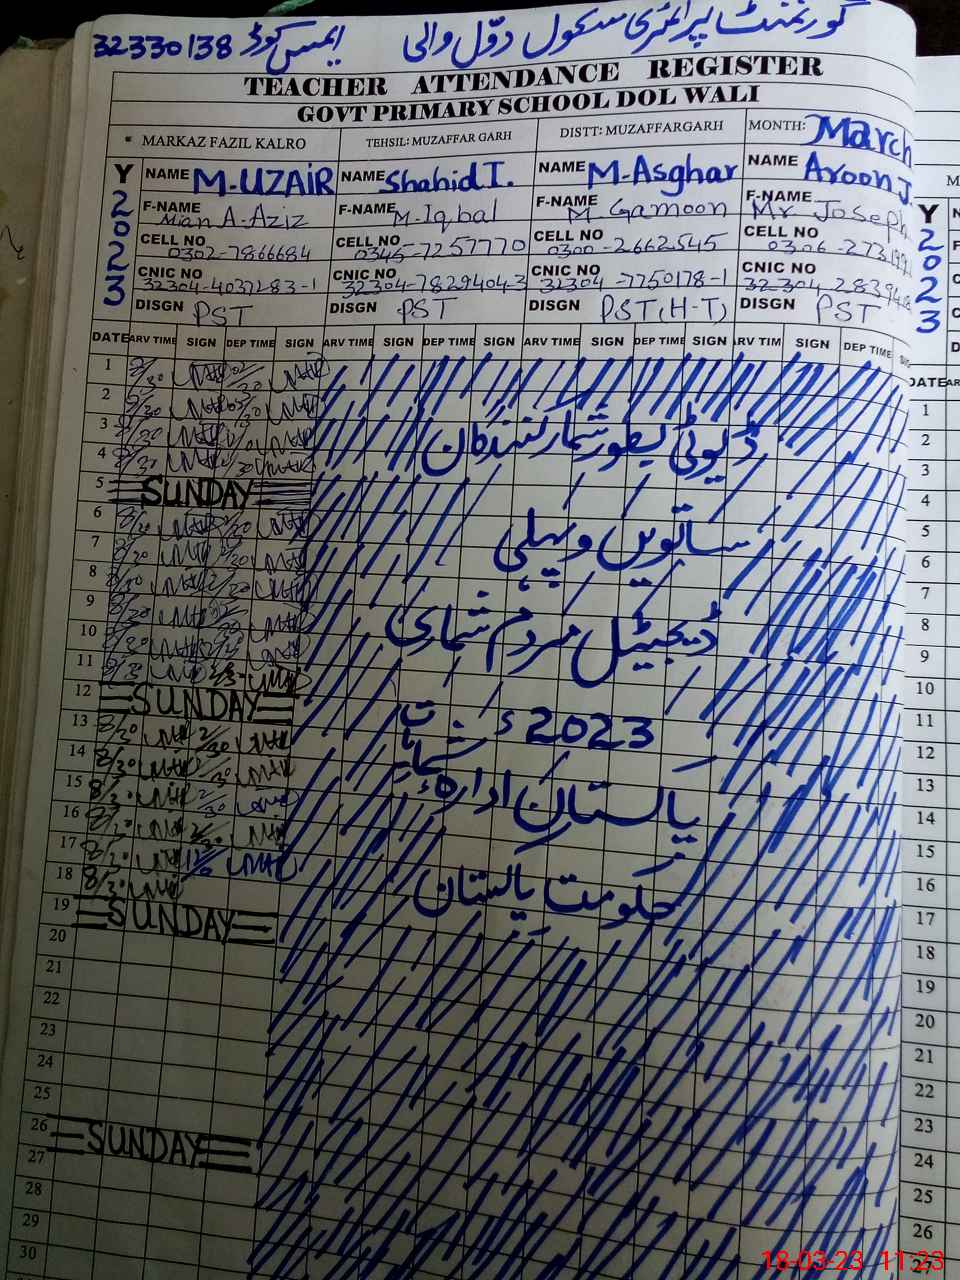 گورنمنٹ پرائمری سکول دوّل والی ایمس کوڈ 32330138
TEACHER ATTENDANCE REGISTER
GOVT PRIMARY SCHOOL DOL WALI
MARKAZ FAZIL KALRO TEHSIL: MUZAFFAR GARH DISTT: MUZAFFARGARH MONTH: March
Y 2023
NAME M-UZAIR NAME Shahid I. NAME M-Asghar NAME Aroon J.
F-NAME Mian A-Aziz F-NAME M-Iqbal F-NAME M Gamoon Mr Joseph
CELL NO 0302-7866684 CELL NO 0345-7257770 CELL NO 0300-2662545 CELL NO 0306-273
CNIC NO 32304-4037283-1 CNIC NO 32304-7829404-3 CNIC NO 32304-7750178-1 CNIC NO 32304 2839
DISGN PST DISGN PST DISGN PST(H-T) DISGN PST
DATE ARV TIME SIGN DEP TIME SIGN ARV TIME SIGN DEP TIME SIGN ARV TIME SIGN DEP TIME SIGN ARV TIM SIGN DEP TIME SIG
1 8/30
2 8/30
3 8/30
4 8/30
5 SUNDAY
6 8/30
7 8/30
8 8/30
9 8/30
10 8/30
11 8/30
12 SUNDAY
13 8/30
14 8/30
15 8/30
16 8/30
17 8/30
18 8/30
19 SUNDAY
20
21
22
23
24
25
26 SUNDAY
27
28
29
30
ڈیوٹی بطور شمار کنندگان
ساتویں و پہلی
ڈیجیٹل مردم شماری
2023ء
پاکستان ادارہء شماریات
حکومت پاکستان
Y 2023
DATE
1
2
3
4
5
6
7
8
9
10
11
12
13
14
15
16
17
18
19
20
21
22
23
24
25
26
18-03-23 11:23